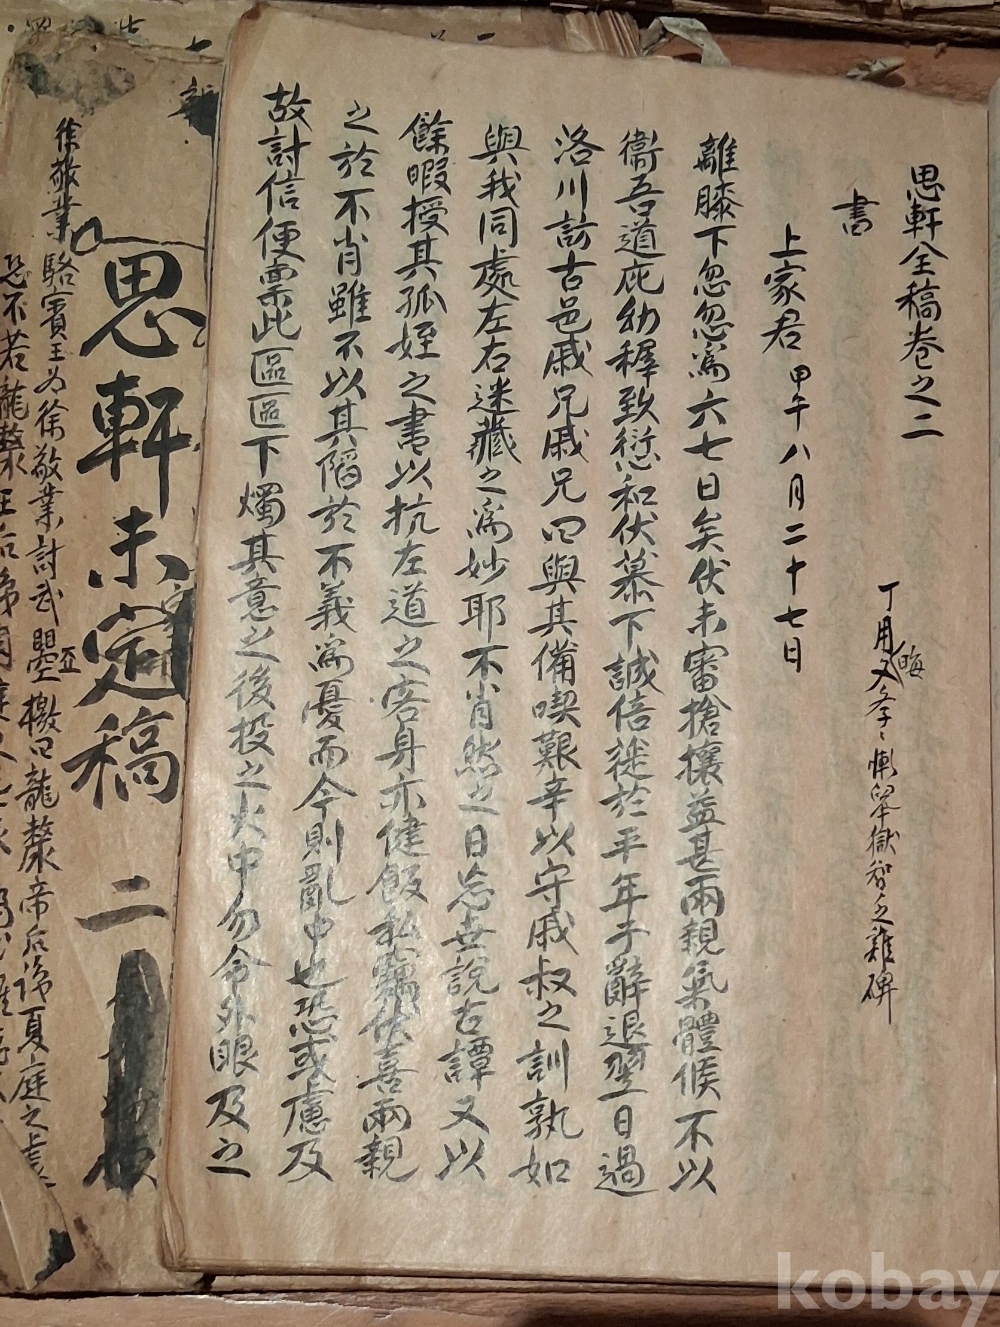 思軒全稿卷之二
書
上家君 甲午八月二十七日
離膝下忽忽爲六七日矣伏未審搶攘益甚兩親氣體候不以
衞吾道庇幼穉致愆和伏慕下誠倍蓰於平年子辭退翌日過
洛川訪古邑戚兄戚兄曰與其備喫艱辛以守戚叔之訓孰如
與我同處左右迷藏之爲妙耶不肖然之日忘世說古譚又以
餘暇授其孤姪之書以抗左道之客身亦健飯私竊伏喜兩親
之於不肖雖不以其陷於不義爲憂而今則亂中也恐或慮及
故討信便票此區區下燭其意之後投之火中勿令外眼及之
思軒未定稿 二
徐敬業
駱賓王爲徐敬業討武曌檄曰龍漦帝后識夏庭之